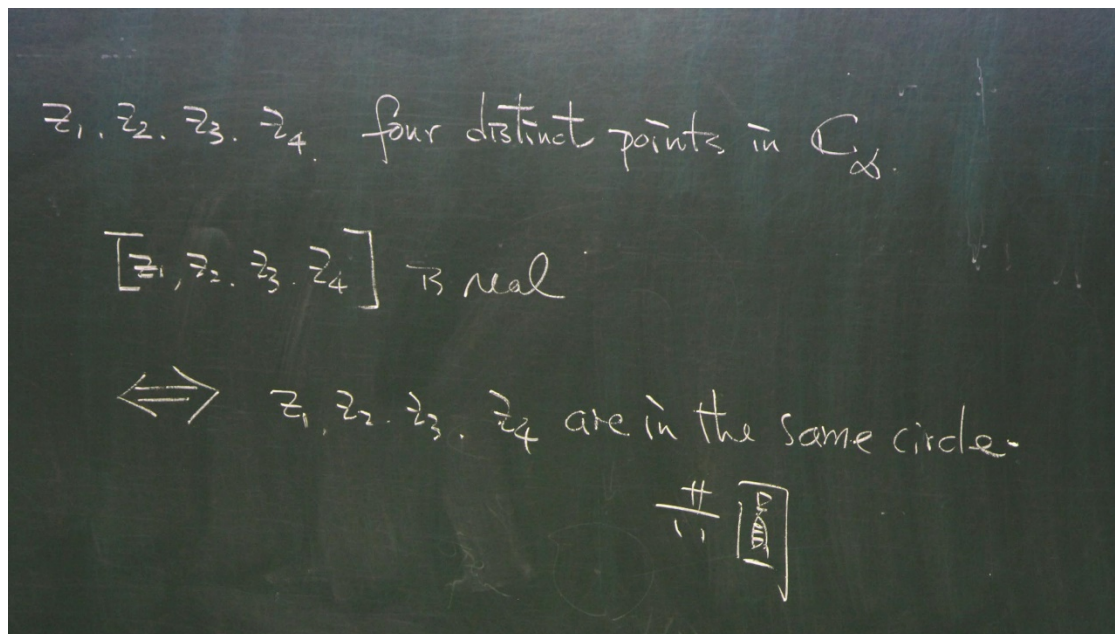 z₁, z₂, z₃, z₄ four distinct points in ℂ∞.
[z₁, z₂, z₃, z₄] is real
⟺ z₁, z₂, z₃, z₄ are in the same circle.
共圓